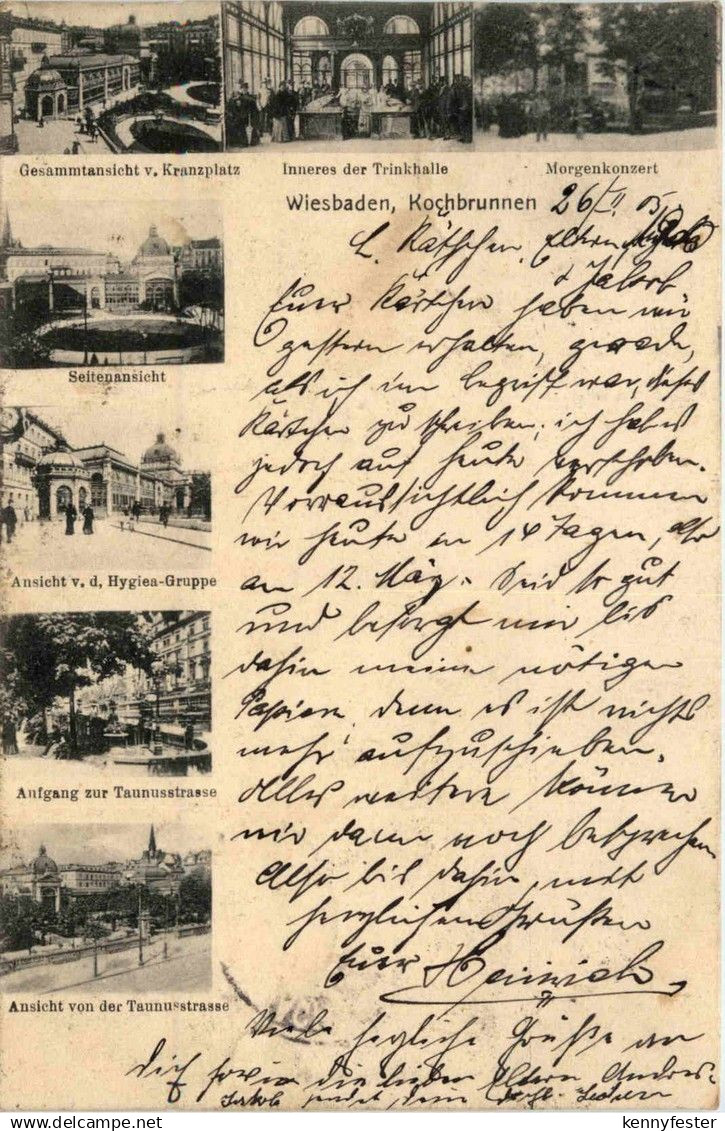 Gesammtansicht v. Kranzplatz
Inneres der Trinkhalle
Morgenkonzert
Wiesbaden, Kochbrunnen 26/II 05
L. Käthchen, Eltern
& Jakob
Euer Kärtchen haben wir
gestern erhalten, gerade,
als ich im Begriff war, dieses
Kärtchen zu schreiben; ich hab es
jedoch auf heute verschoben.
Vorraussichtlich kommen
wir heute in 14 Tagen, also
am 12. März. Seid so gut
und besorgt mir bis
dahin meine nötigen
Papiere, denn es ist nichts
mehr aufzuschieben.
Alles weitere können
wir dann noch besprechen
Also bis dahin, mit
herzlichen Grüßen
Euer Heinrich
Viele herzliche Grüße an
Dich sowie die lieben Eltern
Jakob sendet
Seitenansicht
Ansicht v. d, Hygiea-Gruppe
Aufgang zur Taunusstrasse
Ansicht von der Taunusstrasse
kennyfester